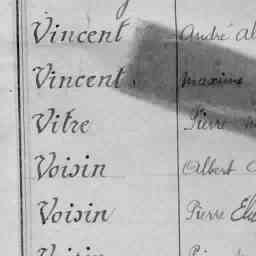 Vincent André Al
Vincent. maxime
Vitre Pierre
Voisin Albert
Voisin Pierre Eli
Voisin